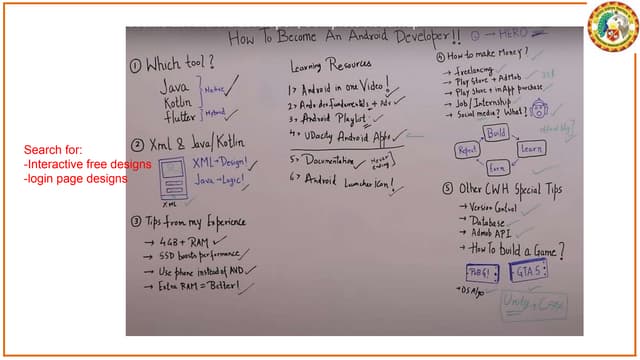 How To Become An Android Developer!! 0 → HERO
① Which tool?
Java
Kotlin
Native
flutter
Hybrid
② Xml & Java/Kotlin
XML→Design!
Java→Logic!
XML
③ Tips from my Experience
→ 4GB + RAM
→ SSD boosts performance
→ Use phone instead of AVD
→ Extra RAM = Better!
Learning Resources
1> Android in one Video!
3> Android Playlist
4> UDacity Android Apps
5> Documentation
Never Ending
6> Android Launcher Icon!
④ How to make Money?
→ freelancing
→ Play Store + AdMob
→ Play Store + in App purchase
→ Job/Internship
→ Social media? What?
Build
Learn
Earn
Repeat
⑤ Other CWH Special Tips
→ Version Control
→ Database
→ Admob API
→ How To build a Game?
PUBG!
GTA 5
→ DSAlgo
Search for:
-Interactive free designs
-login page designs